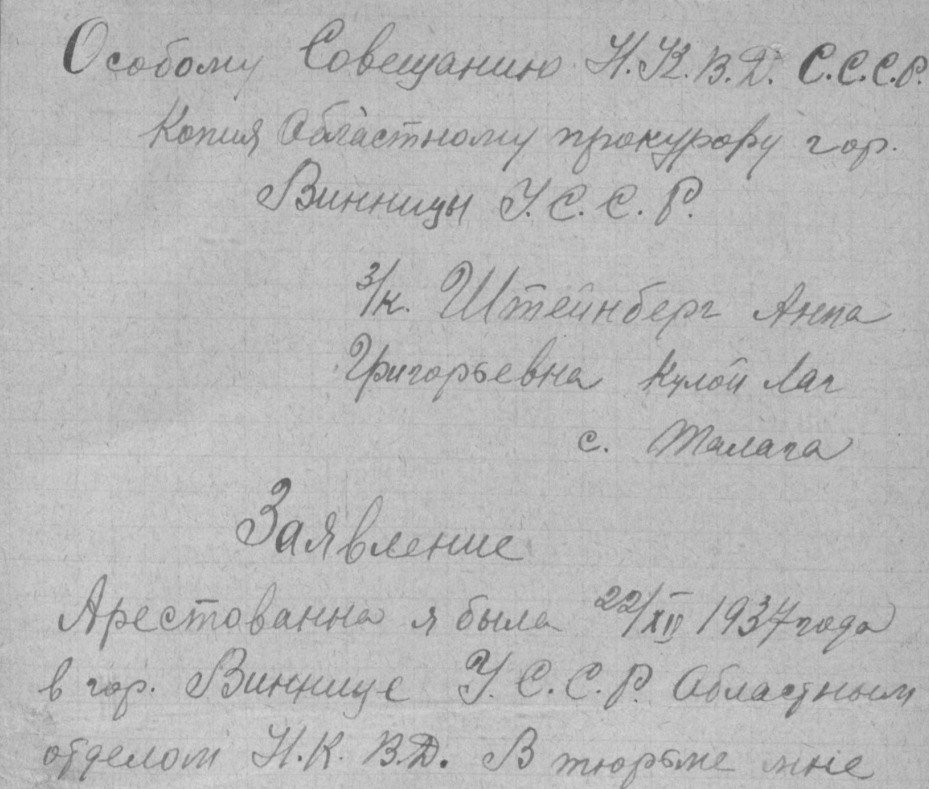 Особому Совещанию Н.К.В.Д. С.С.С.Р.
Копия Областному прокурору гор.
Винницы У.С.С.Р.
З/к. Штейнберг Анна
Григорьевна Кулой Лаг
с. Талага
Заявление
Арестованна я была 22/XII 1937 года
в гор. Виннице У.С.С.Р. Областным
отделом Н.К.В.Д. В тюрьме мне